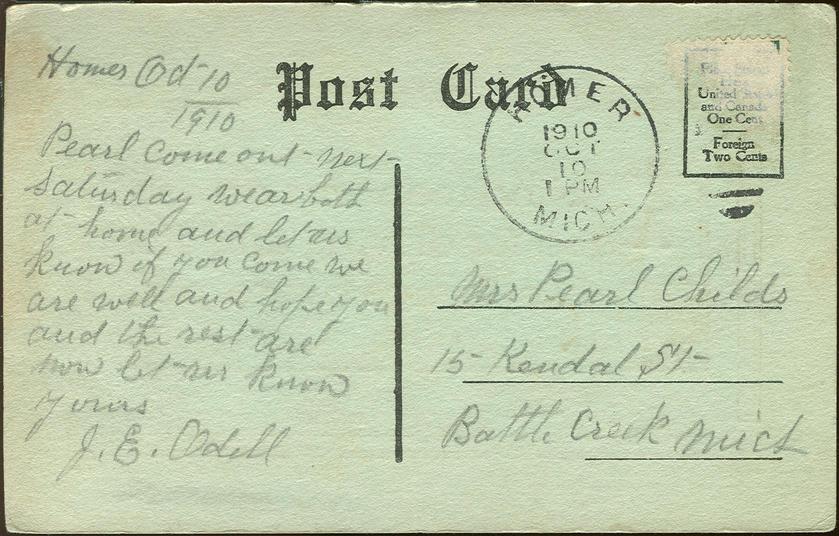 Homer Oct 10
1910
Pearl come out next
Saturday wear both
at home and let us
know if you come we
are well and hope you
and the rest are
now let us know
yours
J. E. Odell
Post Card
HOMER
1910
OCT
10
1 PM
MICH.
United States
and Canada
One Cent
Foreign
Two Cents
Mrs Pearl Childs
15 Kendal St
Battle Creek Mich